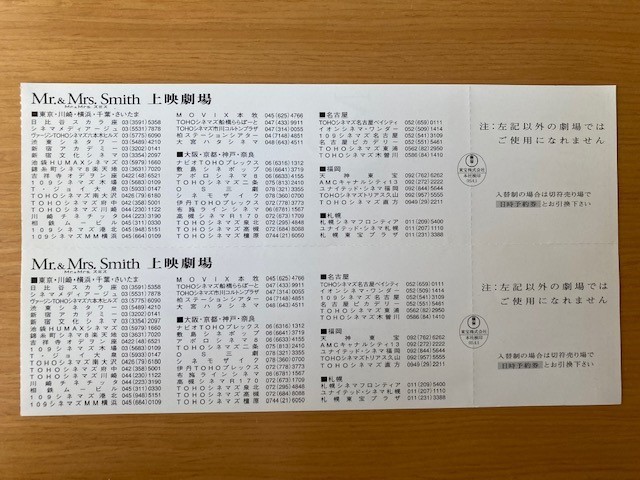 Mr.& Mrs. Smith 上映劇場
Mr.&Mrs. スミス
■東京・川崎・横浜・千葉・さいたま
日比谷スカラ座 03(3591)5358
シネマメディアージュ 03(5531)7878
ヴァージンTOHOシネマズ六本木ヒルズ 03(5775)6090
渋東シネタワー 03(5489)4210
新宿アカデミー 03(3202)0141
新宿文化シネマ 03(3354)2097
池袋HUMAXシネマズ 03(5979)1660
錦糸町シネマ8楽天地 03(3631)7020
吉祥寺オデヲン座 0422(48)6521
109シネマズ木場
T・ジョイ大泉
TOHOシネマズ南大沢
TOHOシネマズ府中
TOHOシネマズ川崎
川崎チネチッタ
相鉄ムービル
109シネマズ港北 045(948)5151
109シネマズMM横浜 045(664)0109
MOVIX本牧 045(625)4766
TOHOシネマズ船橋ららぽーと 047(433)9911
TOHOシネマズ市川コルトンプラザ 047(314)0055
柏ステーションシアター 04(7148)4851
大宮ハタシネマ
■大阪・京都・神戸・奈良
ナビオTOHOプレックス 06(6316)1312
敷島シネポップ
アポロシネマ8
TOHOシネマズ二条 075(813)2410
OS三劇
シネモザイク 078(360)0700
伊丹TOHOプレックス
布施ラインシネマ 06(6781)1567
高槻シネマR170
TOHOシネマズ泉北 072(295)4848
TOHOシネマズ高槻 072(684)8068
TOHOシネマズ橿原 0744(21)6050
■名古屋
TOHOシネマズ名古屋ベイシティ 052(659)0111
イオンシネマ・ワンダー 0568(36)1414
109シネマズ名古屋 052(541)3109
名古屋ピカデリー
TOHOシネマズ東浦 0562(82)2950
TOHOシネマズ木曽川 0586(84)4410
■福岡
天神東宝 092(762)6262
AMCキャナルシティ13 092(272)2222
ユナイテッド・シネマ福岡 092(844)5644
TOHOシネマズトリアス久山 092(957)5555
TOHOシネマズ直方 0949(29)2211
■札幌
札幌シネマフロンティア 011(209)5400
ユナイテッド・シネマ札幌 011(207)1110
札幌東宝プラザ 011(231)3388
注:左記以外の劇場では
ご使用になれません
東宝株式会社
入替制の場合は切符売り場で
日時予約券とお引換下さい
Mr.& Mrs. Smith 上映劇場
Mr.&Mrs. スミス
■東京・川崎・横浜・千葉・さいたま
日比谷スカラ座 03(3591)5358
シネマメディアージュ 03(5531)7878
ヴァージンTOHOシネマズ六本木ヒルズ 03(5775)6090
渋東シネタワー 03(5489)4210
新宿アカデミー 03(3202)0141
新宿文化シネマ 03(3354)2097
池袋HUMAXシネマズ 03(5979)1660
錦糸町シネマ8楽天地 03(3631)7020
吉祥寺オデヲン座 0422(48)6521
109シネマズ木場
T・ジョイ大泉
TOHOシネマズ南大沢
TOHOシネマズ府中
TOHOシネマズ川崎
川崎チネチッタ
相鉄ムービル
109シネマズ港北 045(948)5151
109シネマズMM横浜 045(664)0109
MOVIX本牧 045(625)4766
TOHOシネマズ船橋ららぽーと 047(433)9911
TOHOシネマズ市川コルトンプラザ 047(314)0055
柏ステーションシアター 04(7148)4851
大宮ハタシネマ
■大阪・京都・神戸・奈良
ナビオTOHOプレックス 06(6316)1312
敷島シネポップ
アポロシネマ8
TOHOシネマズ二条 075(813)2410
OS三劇
シネモザイク 078(360)0700
伊丹TOHOプレックス
布施ラインシネマ 06(6781)1567
高槻シネマR170
TOHOシネマズ泉北 072(295)4848
TOHOシネマズ高槻 072(684)8068
TOHOシネマズ橿原 0744(21)6050
■名古屋
TOHOシネマズ名古屋ベイシティ 052(659)0111
イオンシネマ・ワンダー
109シネマズ名古屋 052(541)3109
名古屋ピカデリー
TOHOシネマズ東浦 0562(82)2950
TOHOシネマズ木曽川 0586(84)4410
■福岡
天神東宝 092(762)6262
AMCキャナルシティ13 092(272)2222
ユナイテッド・シネマ福岡 092(844)5644
TOHOシネマズトリアス久山 092(957)5555
TOHOシネマズ直方 0949(29)2211
■札幌
札幌シネマフロンティア 011(209)5400
ユナイテッド・シネマ札幌 011(207)1110
札幌東宝プラザ 011(231)3388
注:左記以外の劇場では
ご使用になれません
東宝株式会社
入替制の場合は切符売り場で
日時予約券とお引換下さい